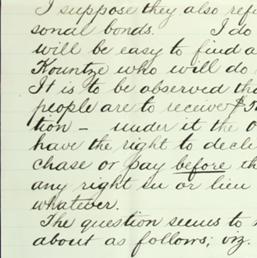 I suppose they also refu
sonal bonds. I do
will be easy to find a
Kountze who will do
It is to be observed tha
people are to receive $
tion – under it the O
have the right to decle
chase or pay before th
any right in or lieu
whatever.
The question seems to
about as follows; viz.